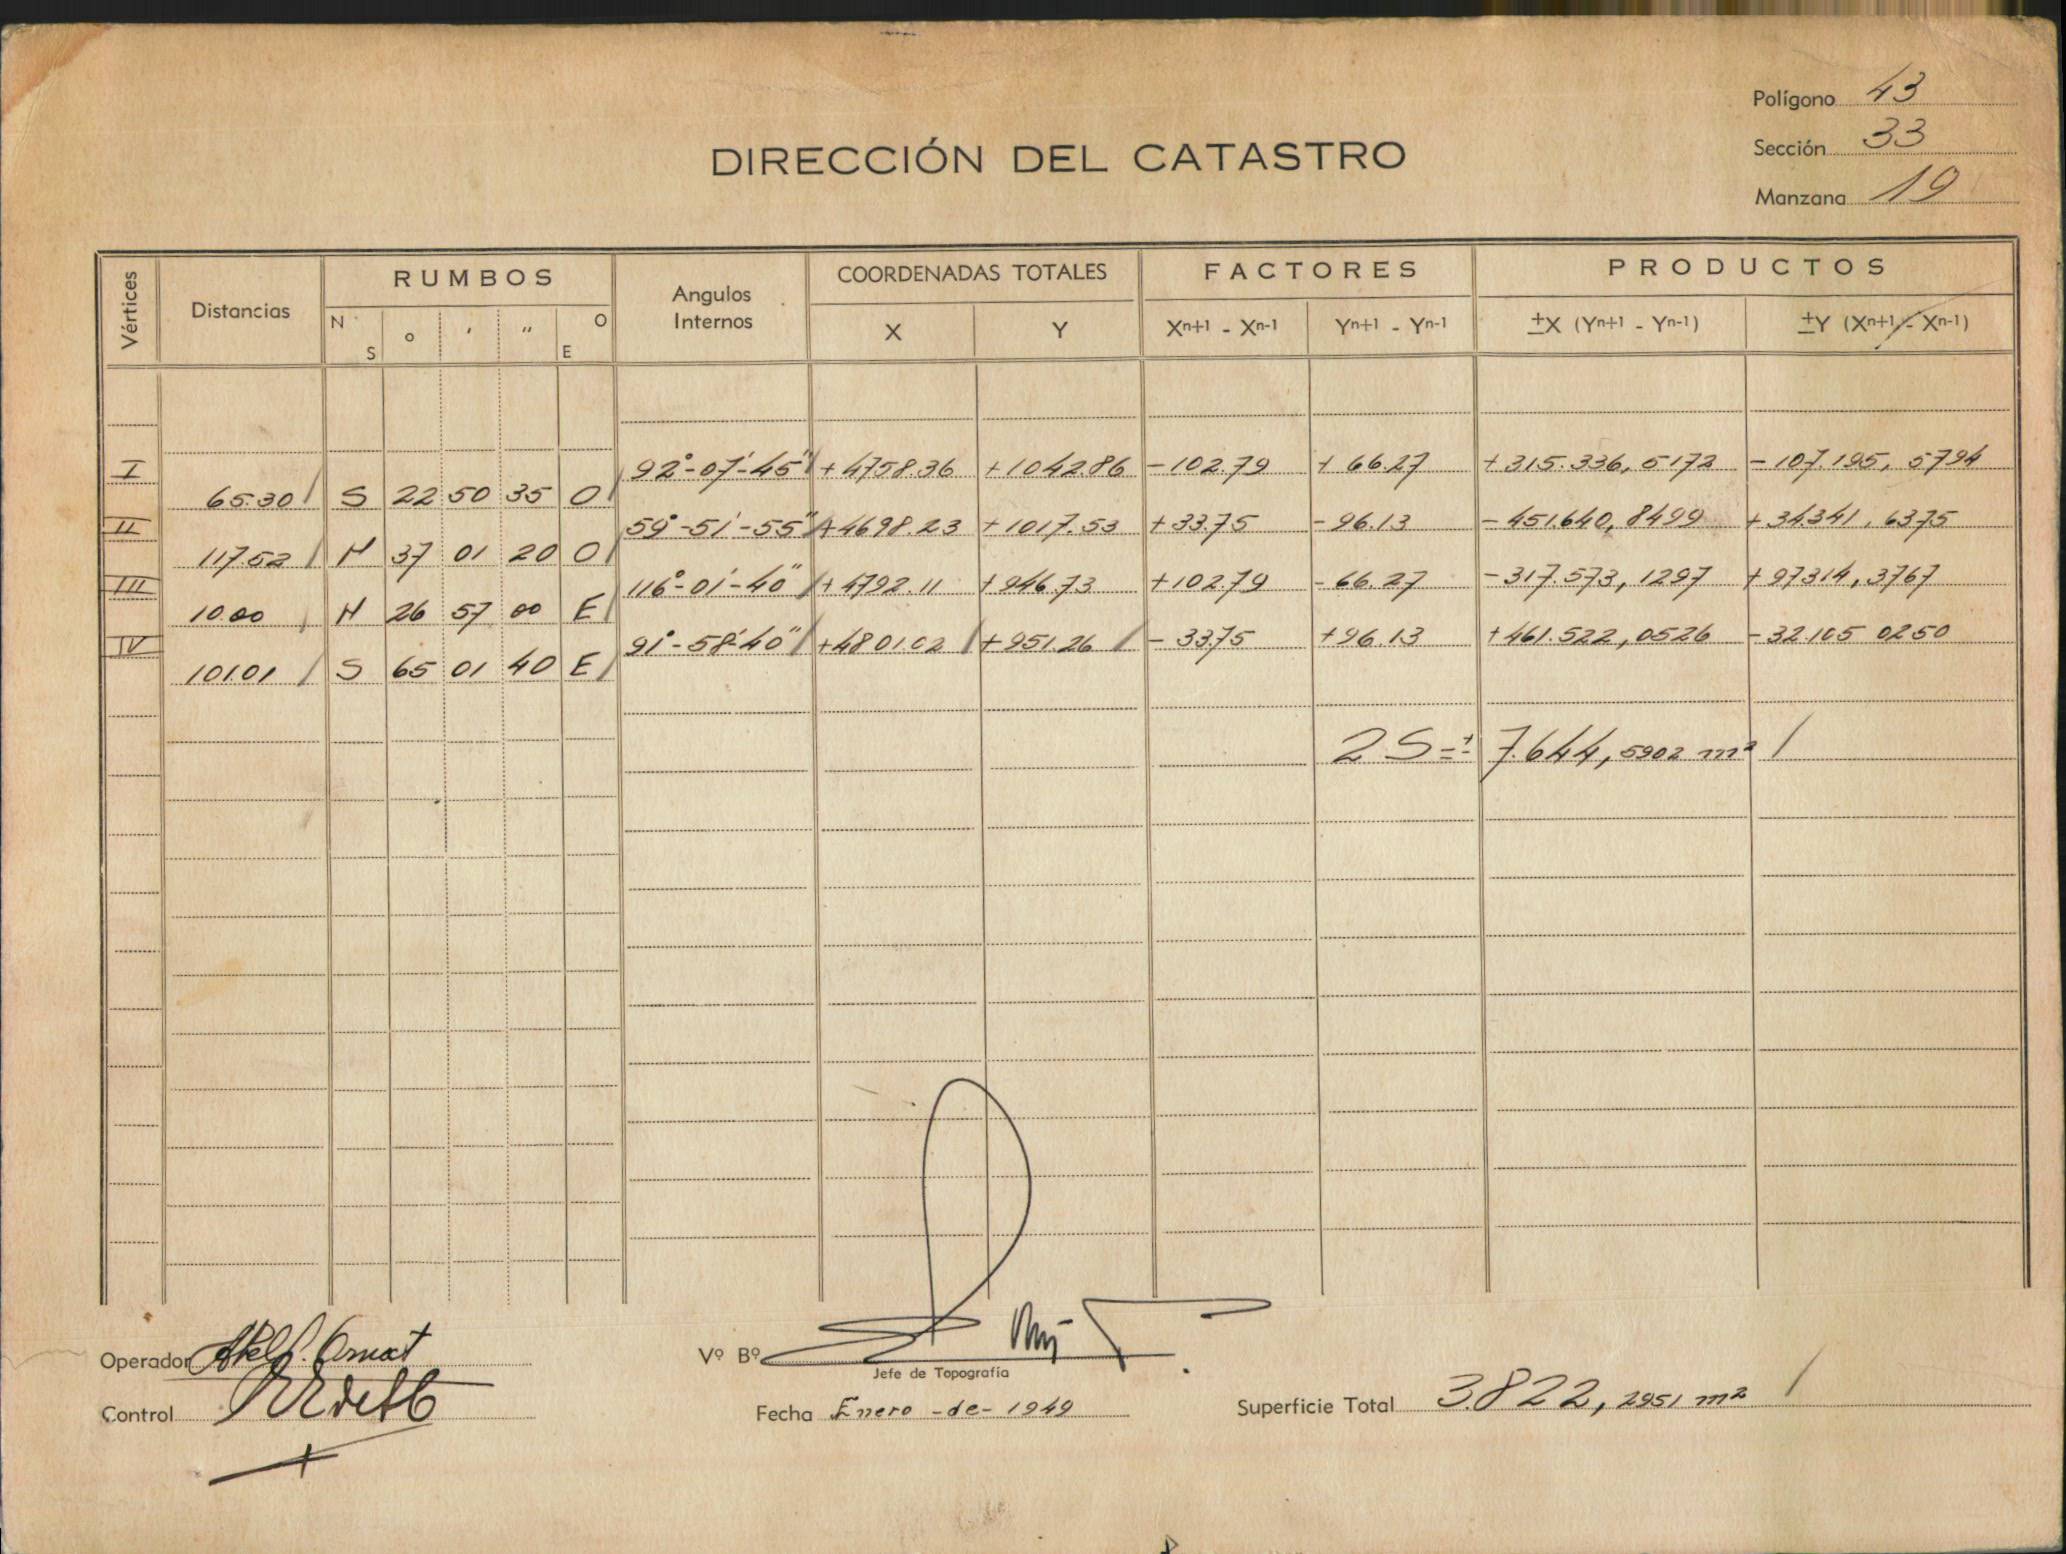 Polígono 43
Sección 33
Manzana 19
DIRECCIÓN DEL CATASTRO
Vértices Distancias RUMBOS Angulos Internos COORDENADAS TOTALES FACTORES PRODUCTOS
N S ° ' " O E X Y Xn+1 - Xn-1 Yn+1 - Yn-1 ±X (Yn+1 - Yn-1) ±Y (Xn+1 - Xn-1)
I 92°-07'-45" +4758.36 +1042.86 -102.79 +66.27 +315.336,5172 -107195,5794
65.30 S 22 50 35 O
II 59°-51'-55" +4698.23 +1017.53 +33.75 -96.13 -451.640,8499 +34.341,6375
117.52 N 37 01 20 O
III 116°-01'-40" +4792.11 +946.73 +102.79 -66.27 -317.573,1297 +97314,3767
10.00 N 26 57 00 E
IV 91°-58'-40" +4801.02 +951.26 -33.75 +96.13 +461.522,0526 -32.105 0250
101.01 S 65 01 40 E
2S=± 7.644,5902 m²
Operador
Control
Vº Bº
Jefe de Topografía
Fecha Enero -de- 1949
Superficie Total 3.822,2951 m²